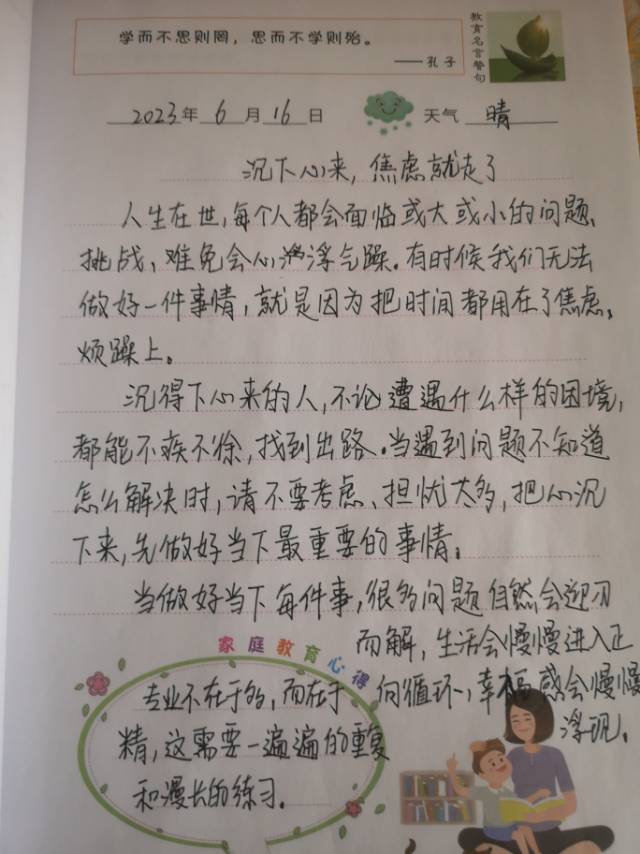 学而不思则罔，思而不学则殆。
——孔子
教育名言警句
2023年6月16日 天气 晴
沉下心来，焦虑就走了
人生在世，每个人都会面临或大或小的问题、
挑战，难免会心浮气躁。有时候我们无法
做好一件事情，就是因为把时间都用在了焦虑、
烦躁上。
沉得下心来的人，不论遭遇什么样的困境，
都能不疾不徐，找到出路。当遇到问题不知道
怎么解决时，请不要考虑、担忧太多，把心沉
下来，先做好当下最重要的事情。
当做好当下每件事，很多问题自然会迎刃
而解，生活会慢慢进入正
向循环，幸福感会慢慢
浮现。
家庭教育心得
专业不在于多，而在于
精，这需要一遍遍的重复
和漫长的练习。